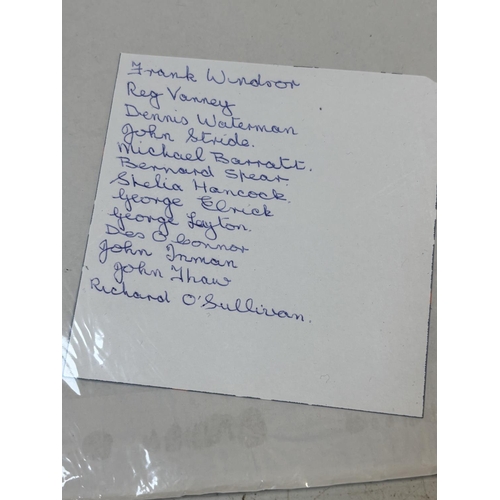 Frank Windsor
Reg Vanney
Dennis Waterman
John Stride.
Michael Barratt.
Bernard Spear.
Shelia Hancock.
George Elrick
George Leyton.
Des O'Connor
John Inman
John Thaw
Richard O'Sullivan.